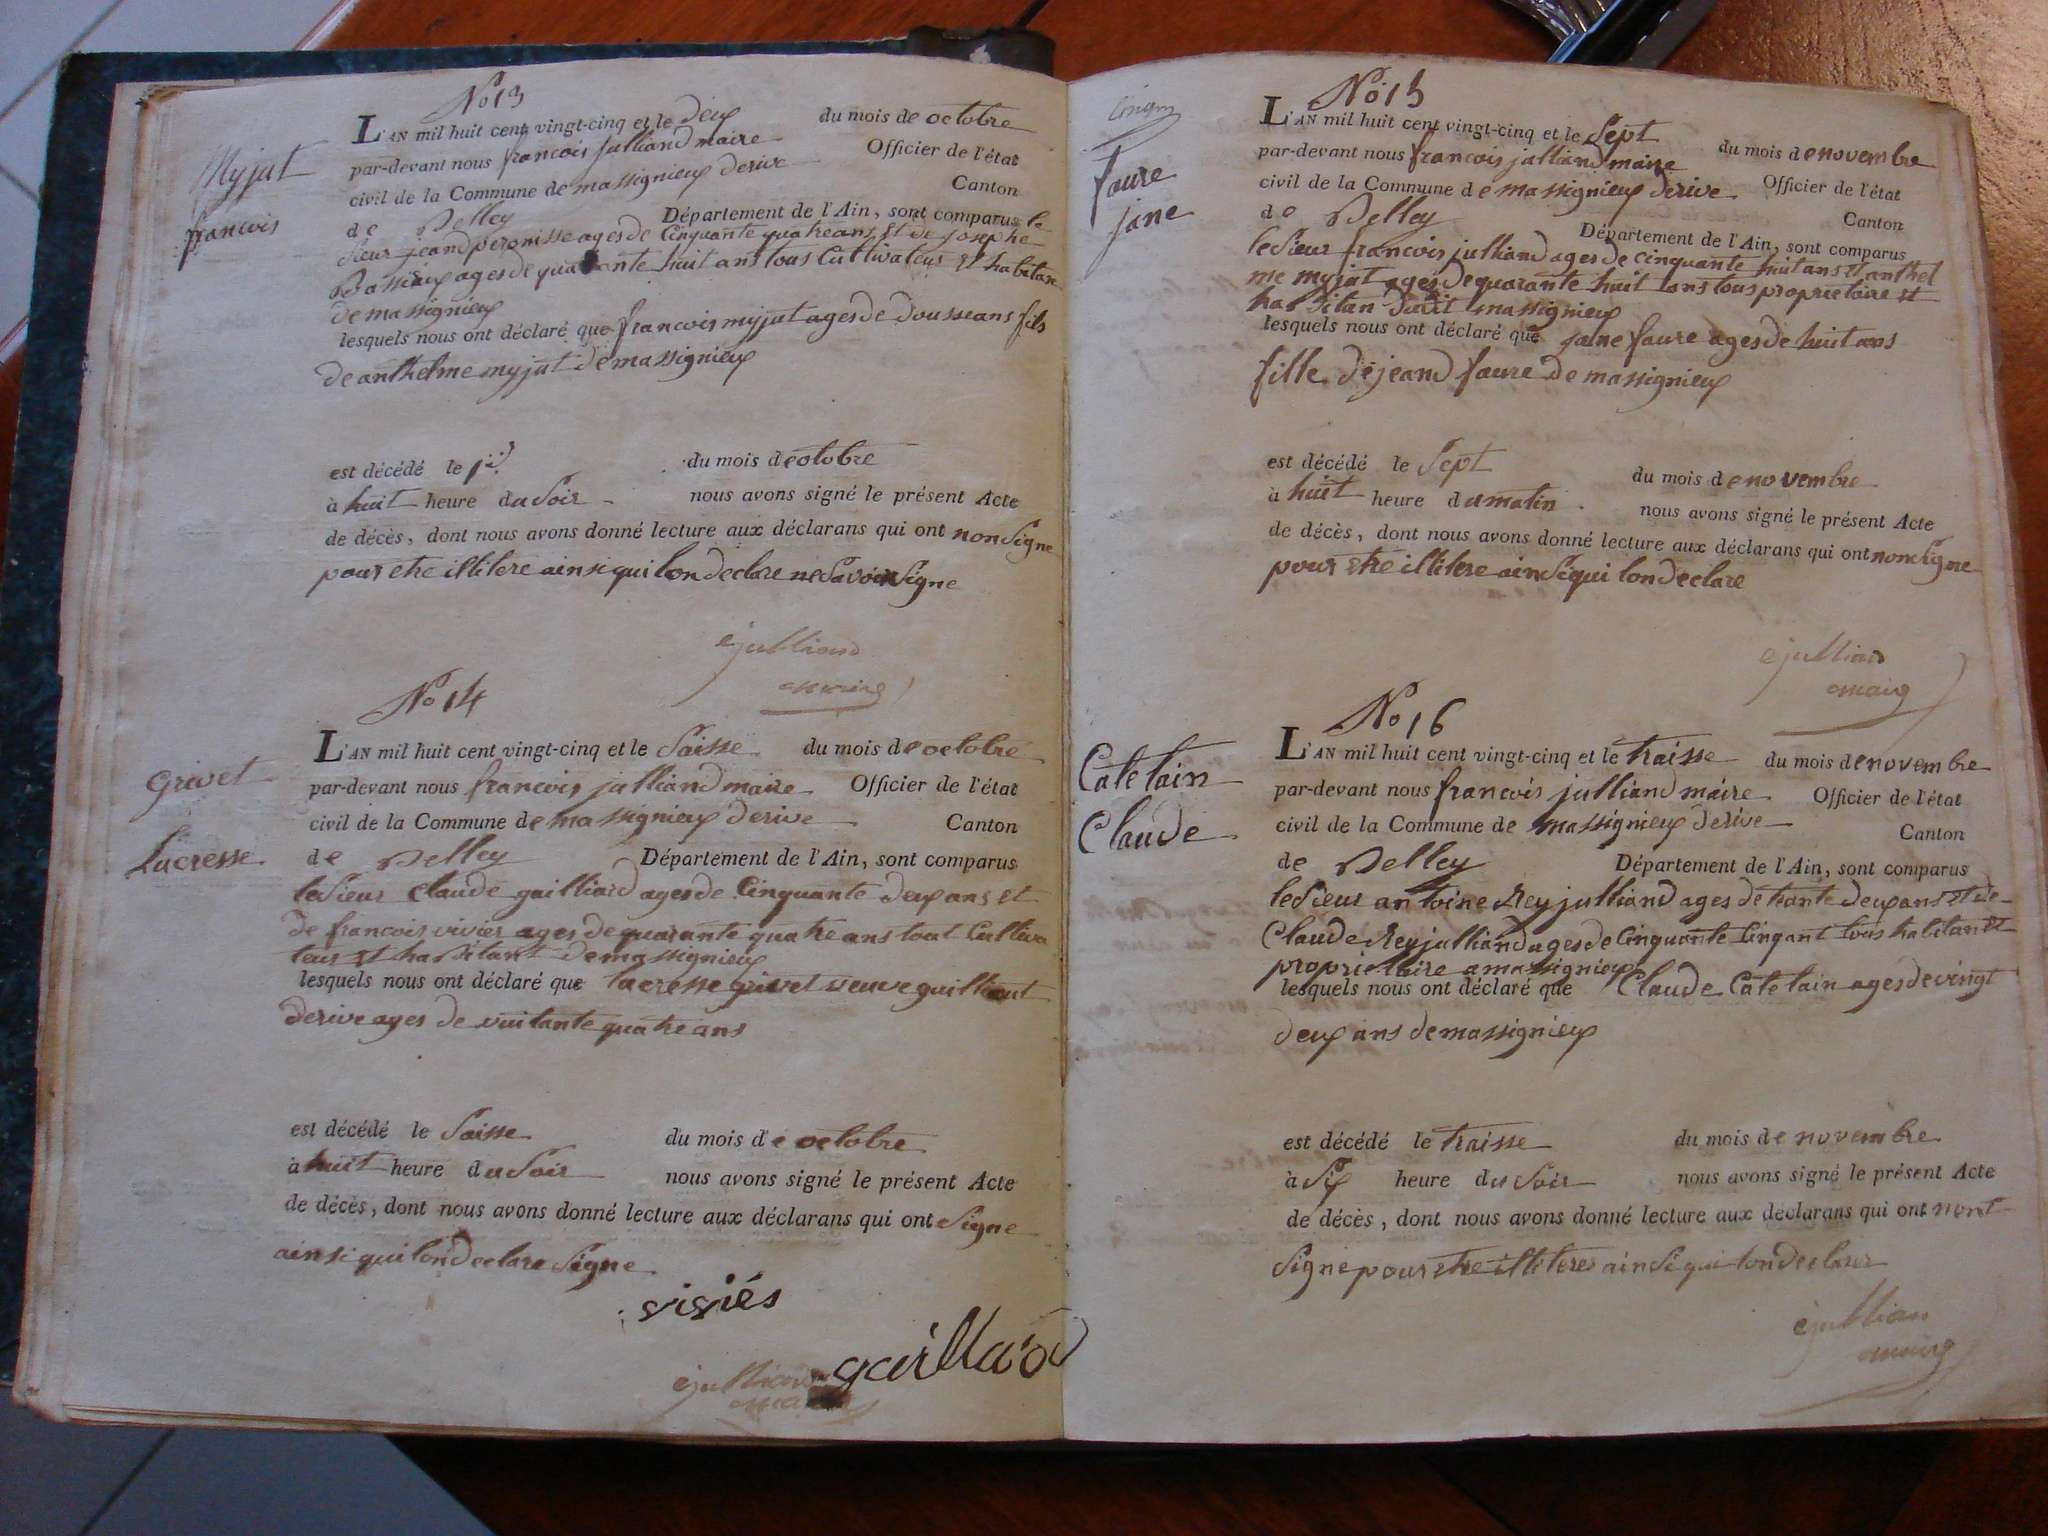 No 13
Myjat
francois
L'AN mil huit cent vingt-cinq et le deux du mois de octobre
par-devant nous francois julliand maire Officier de l'état
civil de la Commune de massignieux derive Canton
de Belley Département de l'Ain, sont comparus le
sieur jeand peronisse ages de Cinquante quatre ans et de josephe
ages de quarante huit ans tous Cultivateur et habitan
de massignieux
lesquels nous ont déclaré que francois myjat ages de dousse ans fils
de anthelme myjat de massignieux
est décédé le 1er du mois de octobre
à huit heure du soir nous avons signé le présent Acte
de décès, dont nous avons donné lecture aux déclarans qui ont non signe
pour etre illitere ainsi qui lon declare ne savoir signe
julliand
maire
No 14
grivet
Lucresse
L'AN mil huit cent vingt-cinq et le saisse du mois de octobre
par-devant nous francois julliand maire Officier de l'état
civil de la Commune de massignieux derive Canton
de Belley Département de l'Ain, sont comparus
le sieur Claude guilliard ages de Cinquante deux ans et
de francois vivier ages de quarante quatre ans tout Cultiva
teur et habitant de massignieux
lesquels nous ont déclaré que lucresse grivet veuve
derive ages de vuitante quatre ans
est décédé le saisse du mois de octobre
à huit heure du soir nous avons signé le présent Acte
de décès, dont nous avons donné lecture aux déclarans qui ont signe
ainsi qui lon declare signe
viviés
gaillard
julliand
maire
No 15
faure
jane
L'AN mil huit cent vingt-cinq et le sept du mois de novembre
par-devant nous francois julliand maire Officier de l'état
civil de la Commune de massignieux derive Canton
de Belley Département de l'Ain, sont comparus
le sieur francois julliand ages de cinquante huit ans et anthel
me myjat ages de quarante huit ans tous proprietaire et
habitan dudit massignieux
lesquels nous ont déclaré que jane faure ages de huit ans
fille de jeand faure de massignieux
est décédé le sept du mois de novembre
à huit heure du matin nous avons signé le présent Acte
de décès, dont nous avons donné lecture aux déclarans qui ont non signe
pour etre illitere ainsi qui lon declare
julliand
maire
No 16
Catelain
Claude
L'AN mil huit cent vingt-cinq et le traisse du mois de novembre
par-devant nous francois julliand maire Officier de l'état
civil de la Commune de massignieux derive Canton
de Belley Département de l'Ain, sont comparus
le sieur antoine Rey julliand ages de trante deux ans et de
Claude Rey julliand ages de Cinquante Cinq ant tous habitan et
proprietaire a massignieux
lesquels nous ont déclaré que Claude Catelain ages de vingt
deux ans de massignieux
est décédé le traisse du mois de novembre
à six heure du soir nous avons signé le présent Acte
de décès, dont nous avons donné lecture aux déclarans qui ont nont
signe pour etre illiteres ainsi qui lon declarer
julliand
maire